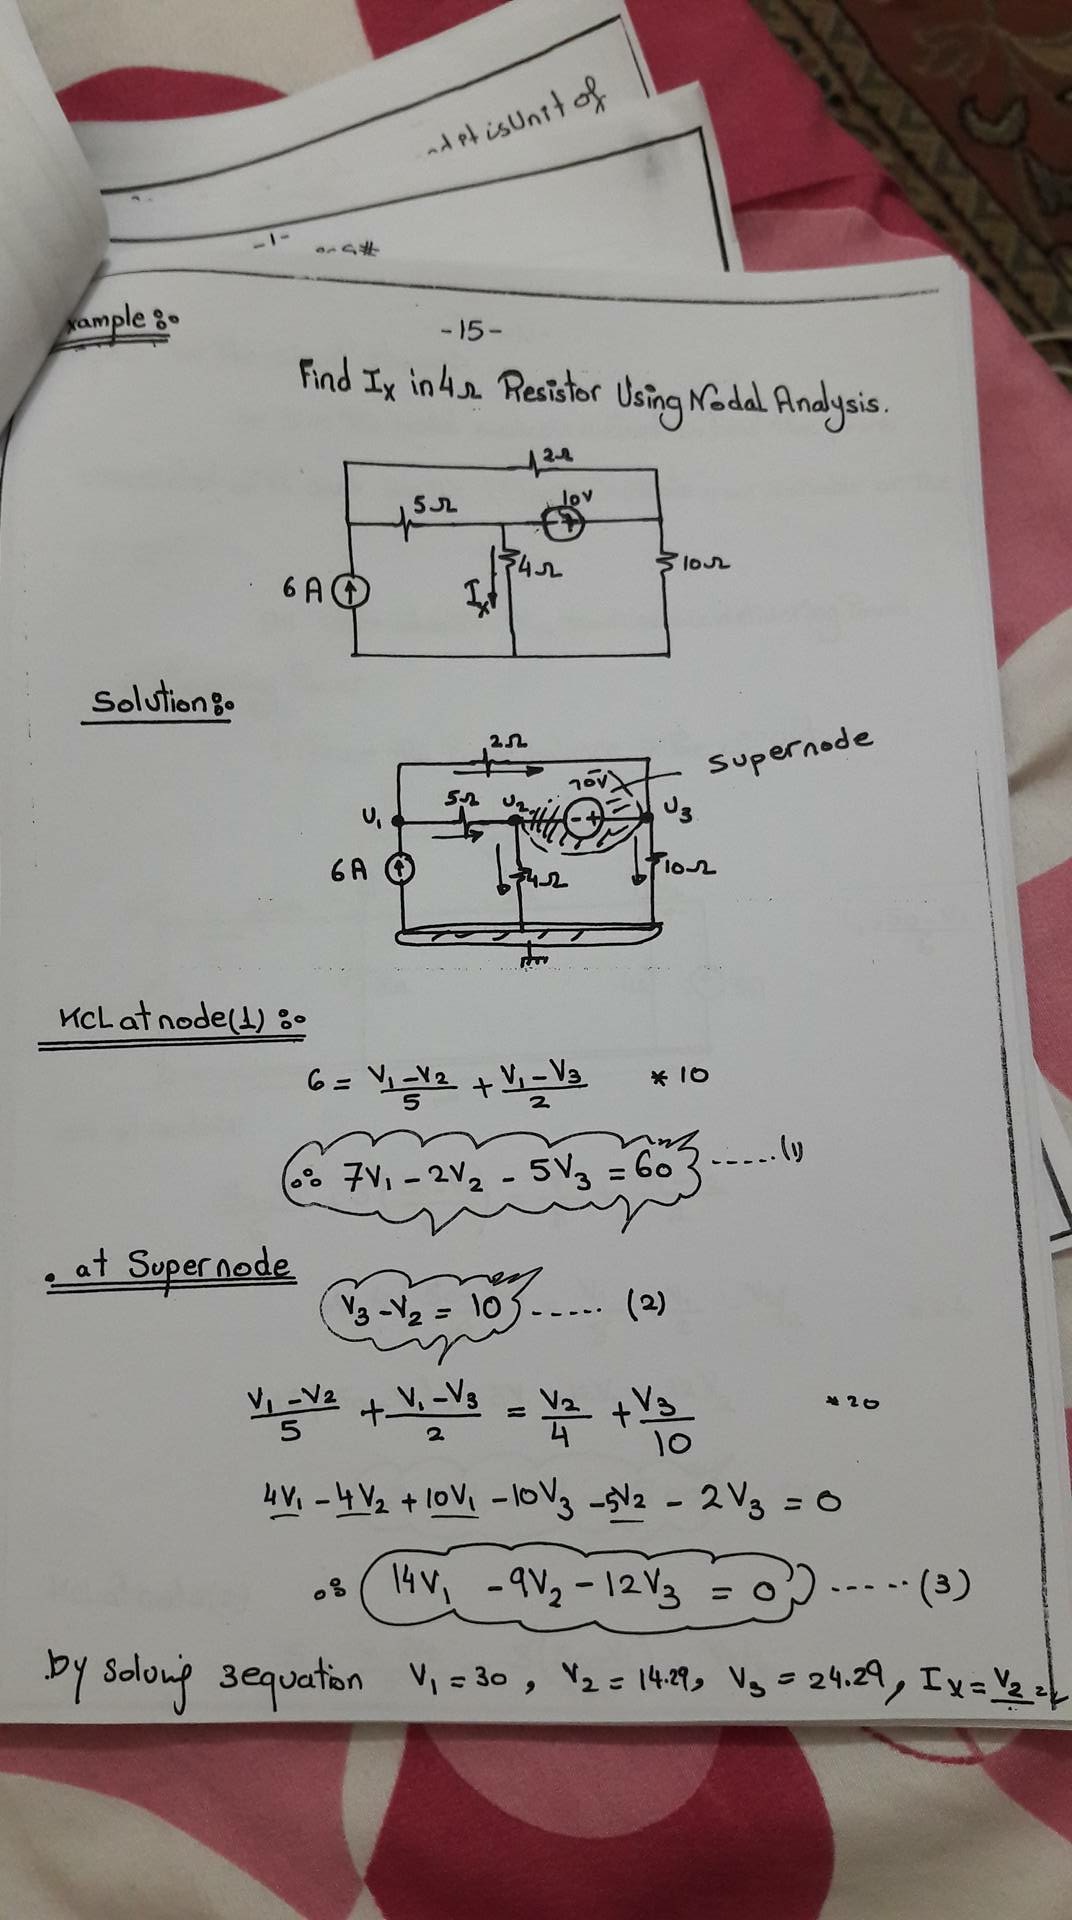 is Unit of
-1-
xample:
-15-
Find Ix in 4Ω Resistor Using Nodal Analysis.
2Ω
5Ω
10V
- +
4Ω
10Ω
6A
Ix
Solution:
2Ω
Supernode
10V
5Ω
V1
V2
- +
V3
6A
4Ω
10Ω
KCL at node(1):
6 = (V1-V2)/5 + (V1-V3)/2 * 10
∴ 7V1 - 2V2 - 5V3 = 60 ......(1)
. at Supernode
V3 - V2 = 10 ...... (2)
(V1-V2)/5 + (V1-V3)/2 = V2/4 + V3/10 *20
4V1 - 4V2 + 10V1 - 10V3 - 5V2 - 2V3 = 0
∴ 14V1 - 9V2 - 12V3 = 0 ...... (3)
by solving 3equation V1 = 30, V2 = 14.29, V3 = 24.29, Ix = V2